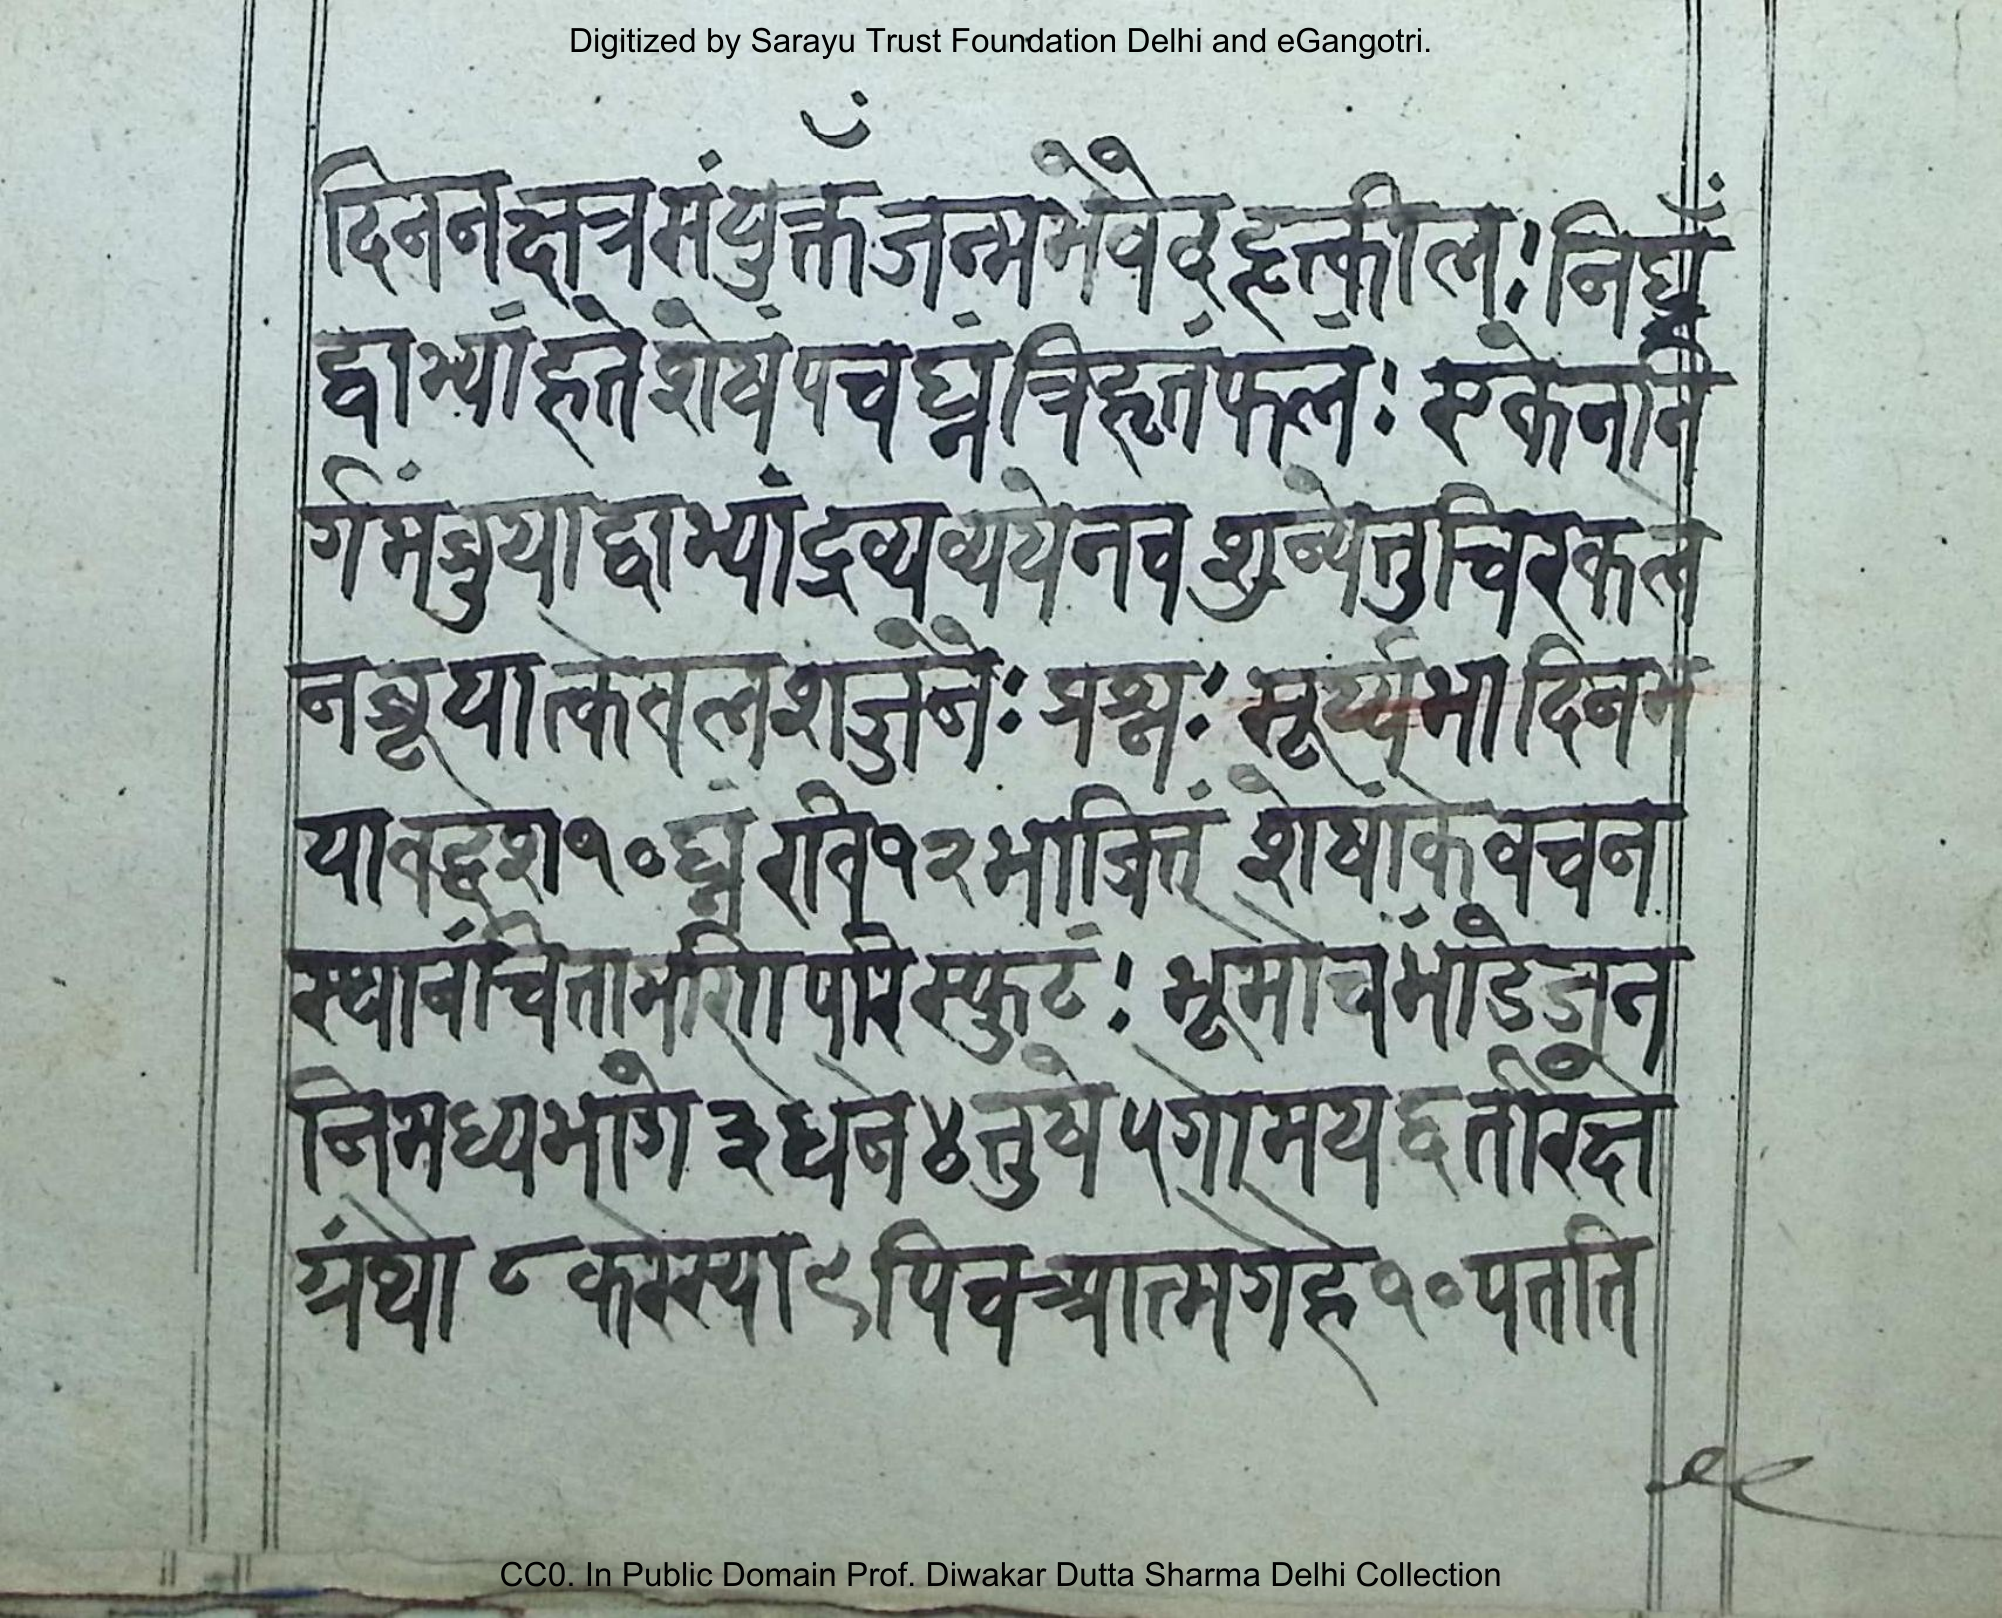 Digitized by Sarayu Trust Foundation Delhi and eGangotri.
दिननक्षत्रसंयुक्तँ जन्मभैवेद हृत्कील्: निघ्नँ
द्वाभ्यां हृते शेषं पचघ्नं त्रिहृतं फलं: एकेननि
र्गमं ब्रुयाद्वाभ्यां द्रव्यव्ययेनव शुन्येतुचिरकाल
नब्रूयात्केवलशर्जुनैः प्रश्नः सूर्य्यभा दिनभ
यावद्दश१०घ्नं रवि१२भाजितं शेषांकवचन
स्थानं चिंतामणि परिस्फुटं: भूमौच भांडे ज्रून
निमध्यभागे ३ धने ४ तुषे ५ गोमय
ग्रंथो ८ कस्स्या ९ पिवआत्मगृहे १० पतति
CC0. In Public Domain Prof. Diwakar Dutta Sharma Delhi Collection